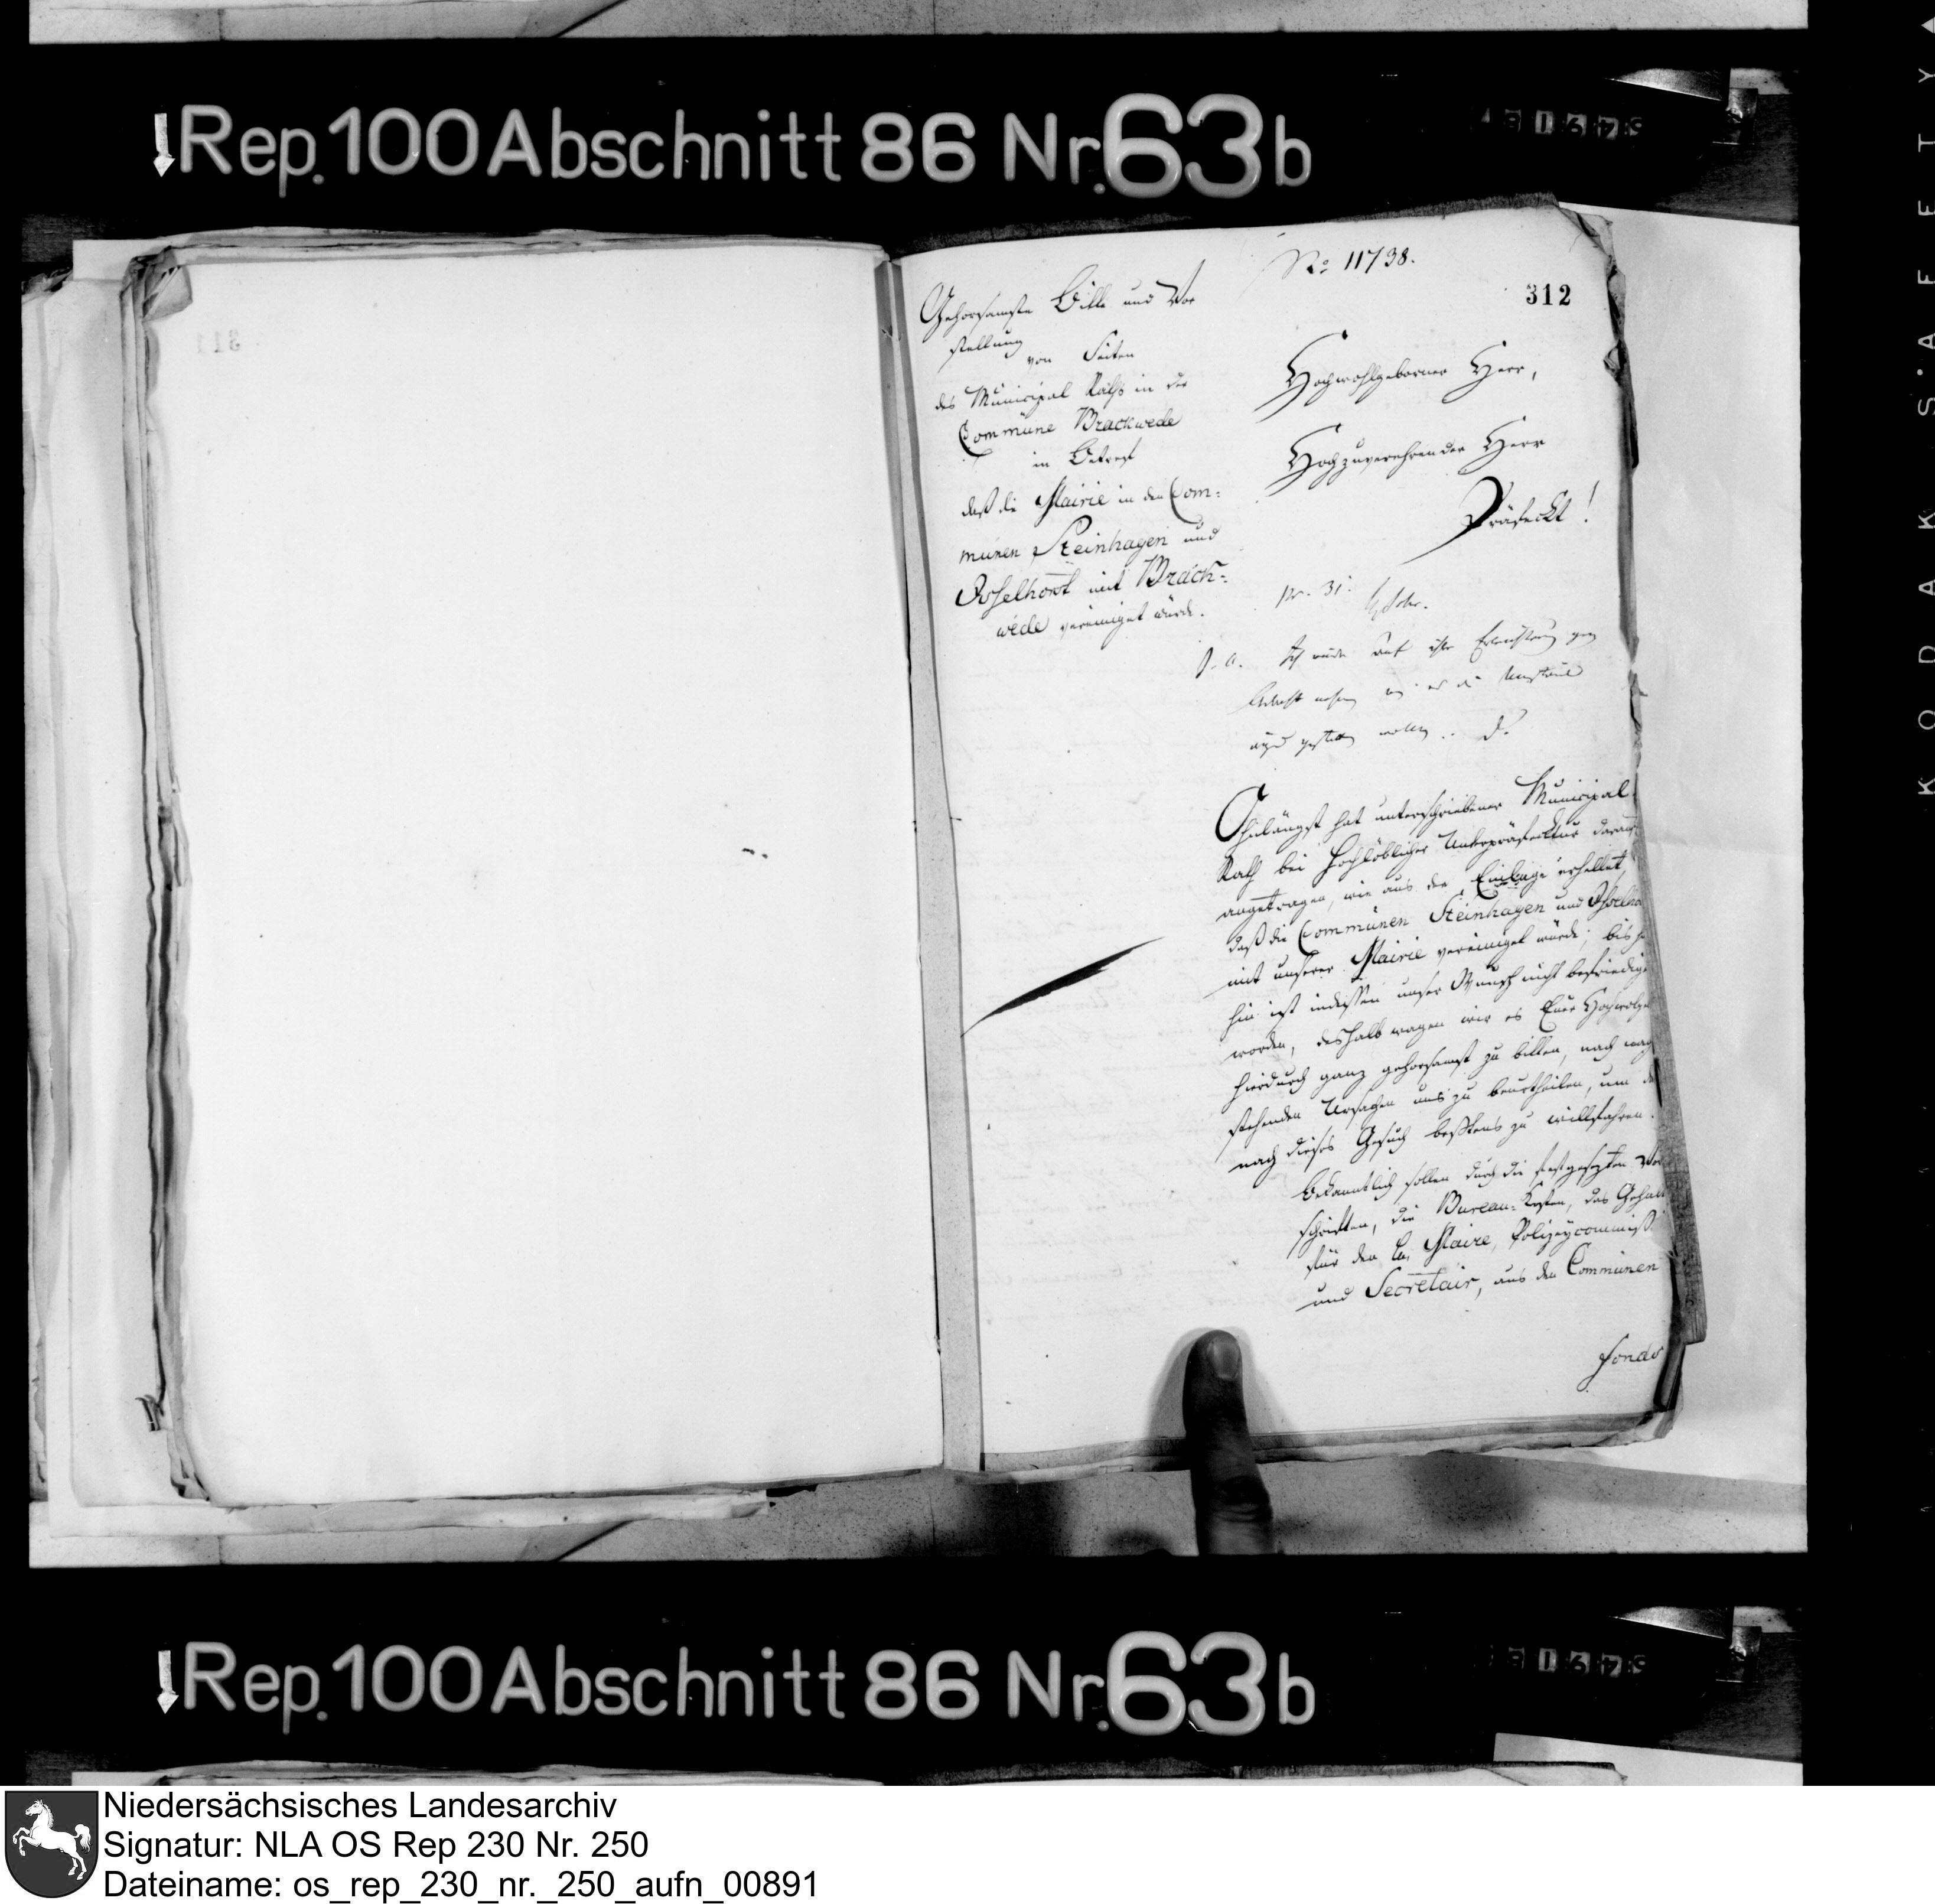 Rep. 100 Abschnitt 86 Nr. 63b
No 11738.
312
Gehorsamste Bitte und Vor
stellung
von Seiten
des Municipal Raths in der
Commüne Brackwede
in Betreff
daß die Mairie in den Com-
münen Steinhagen und
Isselhorst mit Brack-
wede vereiniget würde.
Hochwohlgeborner Herr,
Hochzuverehrender Herr
Präfeckt!
pr. 31.
Ohnlängst hat unterschriebener Municipal
Rath bei Hochlöblicher Unterpräfecktur darauf
angetragen, wie aus der Einlage erhellet,
daß die Commünen Steinhagen und Isselho
mit unserer Mairie vereiniget würde; bis je
hin ist indessen unser Wunsch nicht befriedigt
worden, deshalb wagen wir es Euer Hochwolge
hierdurch ganz gehorsamst zu bitten, nach
stehenden Ursachen uns zu beurtheilen, um
nach dieses Gesuch bestens zu willfahren.
Bekanntlich sollen durch die festgesezten Vor
schriften, die Bureau-Kosten, das Gehalt
für den Maire, Polizeycommiss
und Secretair, aus den Commünen
fonds
KODAK SAFETY
Rep. 100 Abschnitt 86 Nr. 63b
Niedersächsisches Landesarchiv
Signatur: NLA OS Rep 230 Nr. 250
Dateiname: os_rep_230_nr._250_aufn_00891